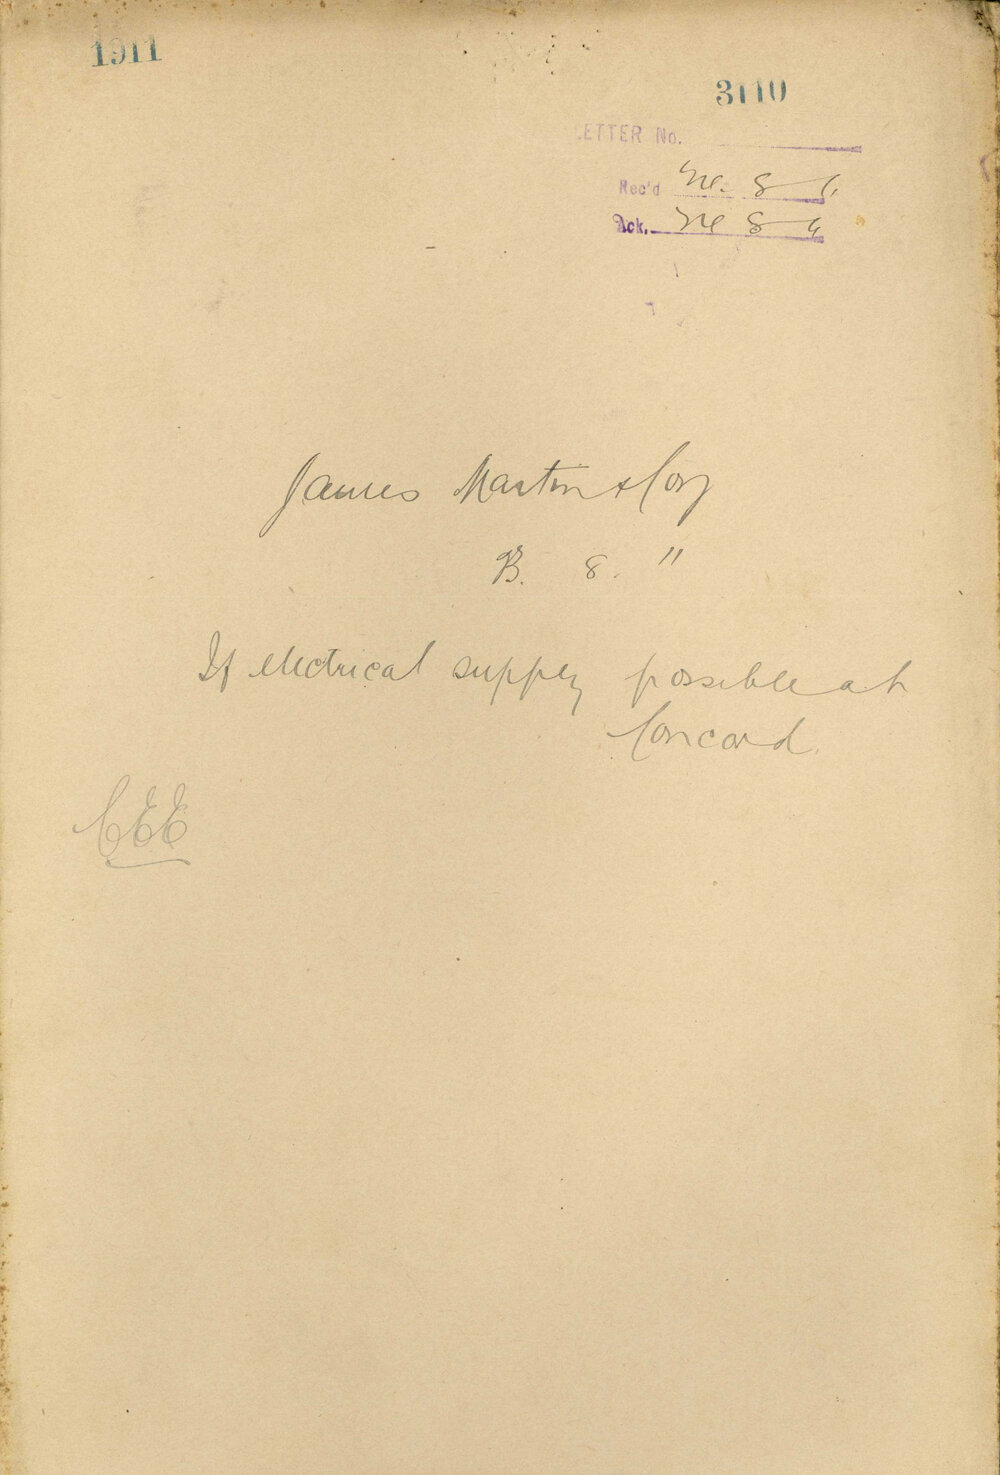 1911
3110
LETTER No.
Rec'd 8
Ack. 8
James Martin & Coy
8. "
If electrical supply possible at
Concord.
CEE